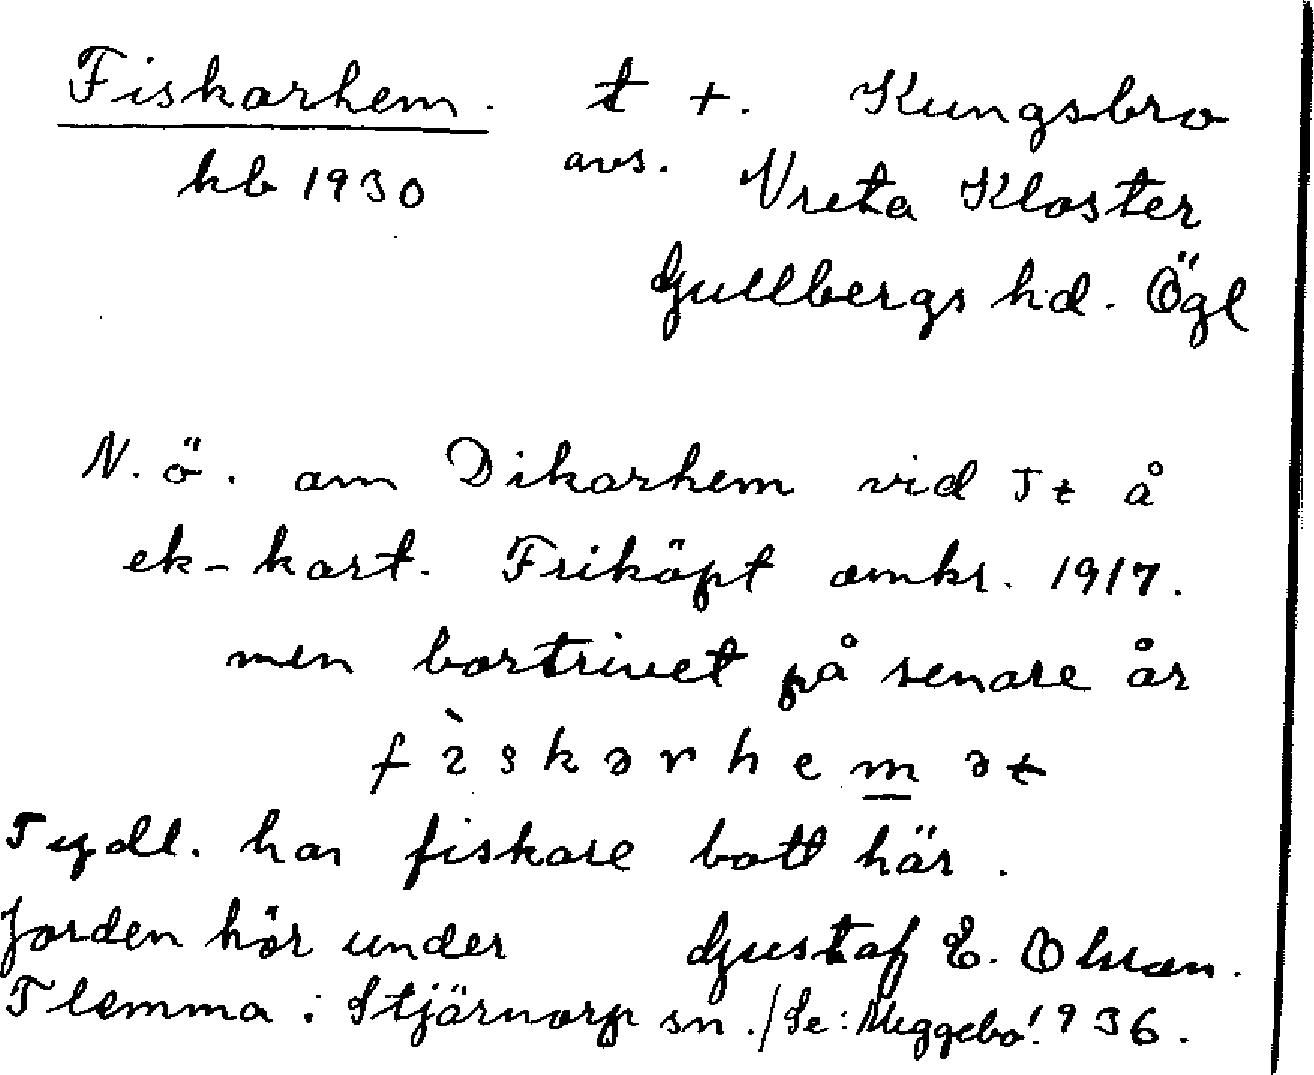 Fiskarhem. t +. Kungsbro
kb 1930 avs. Vreta Kloster
Gullbergs hd. Ögl
N. ö. om Dikarhem vid Tt å
ek-kart. Friköpt omkr. 1917.
men bortrivet på senare år
fìskərhemət
Tydl. har fiskare bott här.
Jorden hör under Gustaf E. Olsson.
Flemma i Stjärnorp sn. /Se: Meggebo! 1936.